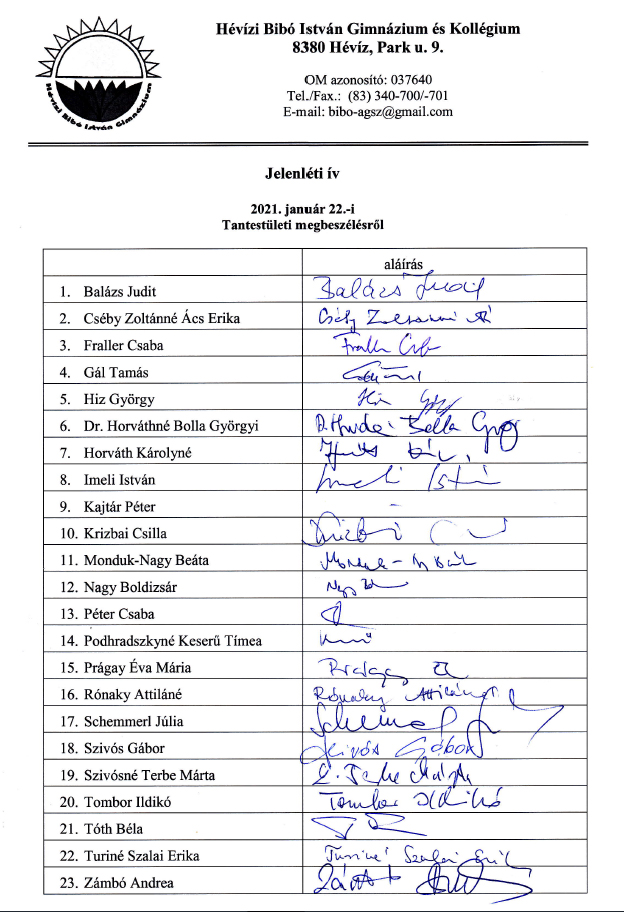 Hévízi Bibó István Gimnázium és Kollégium
8380 Hévíz, Park u. 9.
OM azonosító: 037640
Tel./Fax.: (83) 340-700/-701
E-mail: bibo-agsz@gmail.com
Hévízi Bibó István Gimnázium
Jelenléti ív
2021. január 22.-i
Tantestületi megbeszélésről
aláírás
1. Balázs Judit Balázs Judit
2. Cséby Zoltánné Ács Erika Cséby Zoltánné
3. Fraller Csaba Fraller
4. Gál Tamás
5. Hiz György Hiz
6. Dr. Horváthné Bolla Györgyi Bolla
7. Horváth Károlyné
8. Imeli István Imeli István
9. Kajtár Péter -
10. Krizbai Csilla
11. Monduk-Nagy Beáta Monduk-
12. Nagy Boldizsár Nagy
13. Péter Csaba
14. Podhradszkyné Keserű Tímea
15. Prágay Éva Mária
16. Rónaky Attiláné Rónaky Attiláné
17. Schemmerl Júlia
18. Szivós Gábor Szivós Gábor
19. Szivósné Terbe Márta
20. Tombor Ildikó Tombor Ildikó
21. Tóth Béla
22. Turiné Szalai Erika Turiné Szalai Erik
23. Zámbó Andrea